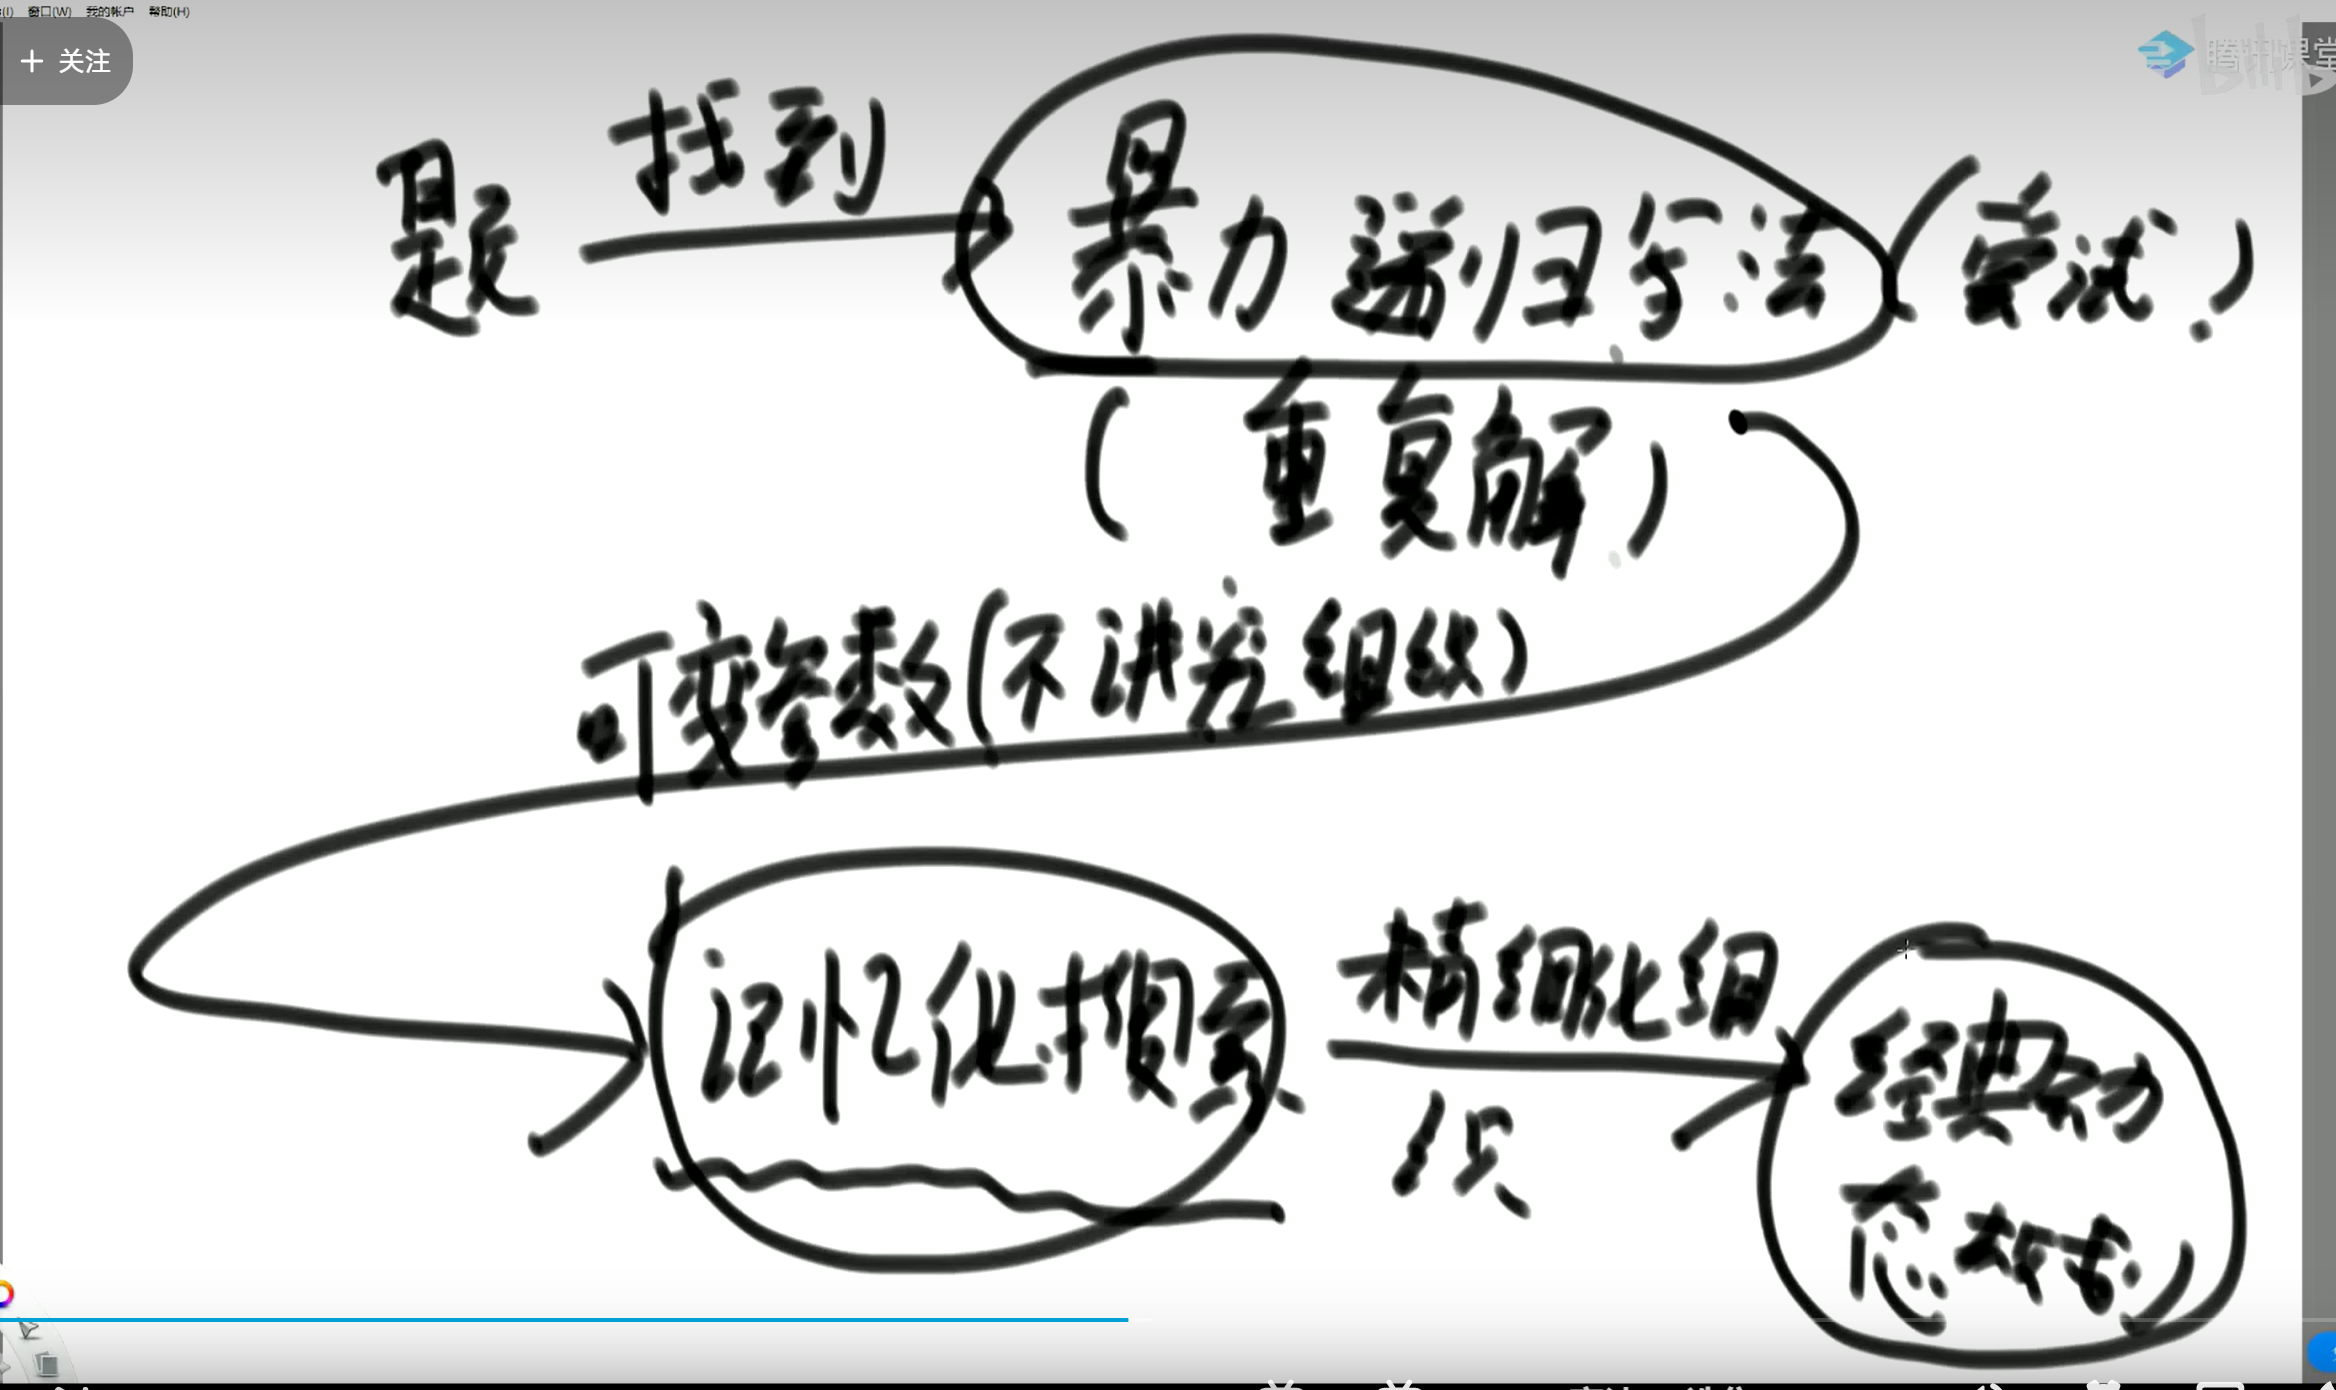 窗口(W) 我的帐户 帮助(H)
+ 关注
腾讯课堂
题 找到 暴力递归写法 (尝试)
(重复解)
可变参数(不讲究组织)
记忆化搜索 精细化组织 经典动态规划